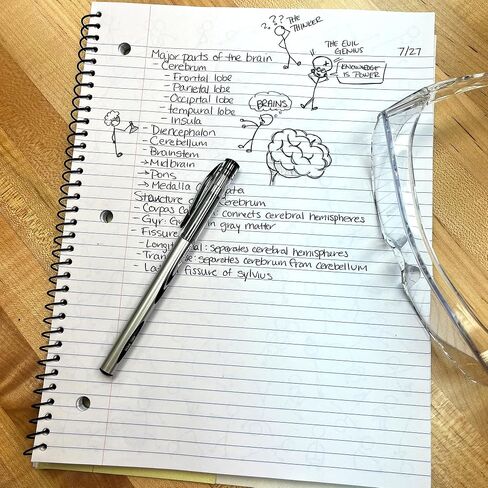 ? ? ? THE
THINKER
THE EVIL
GENIUS
7/27
KNOWLEDGE
IS POWER
Major parts of the brain
- Cerebrum
- Frontal lobe
- Parietal lobe
- Occipital lobe
- temporal lobe
- Insula
BRAINS
- Diencephalon
- Cerebellum
- Brainstem
→ Midbrain
→ Pons
→ Medalla
Cerebrum
- Corpas connects cerebral hemispheres
- Gyr: in gray mattor
- Fissure
- separates cerebral hemispheres
- separates cerebrum from cerebellum
- fissure of sylvius